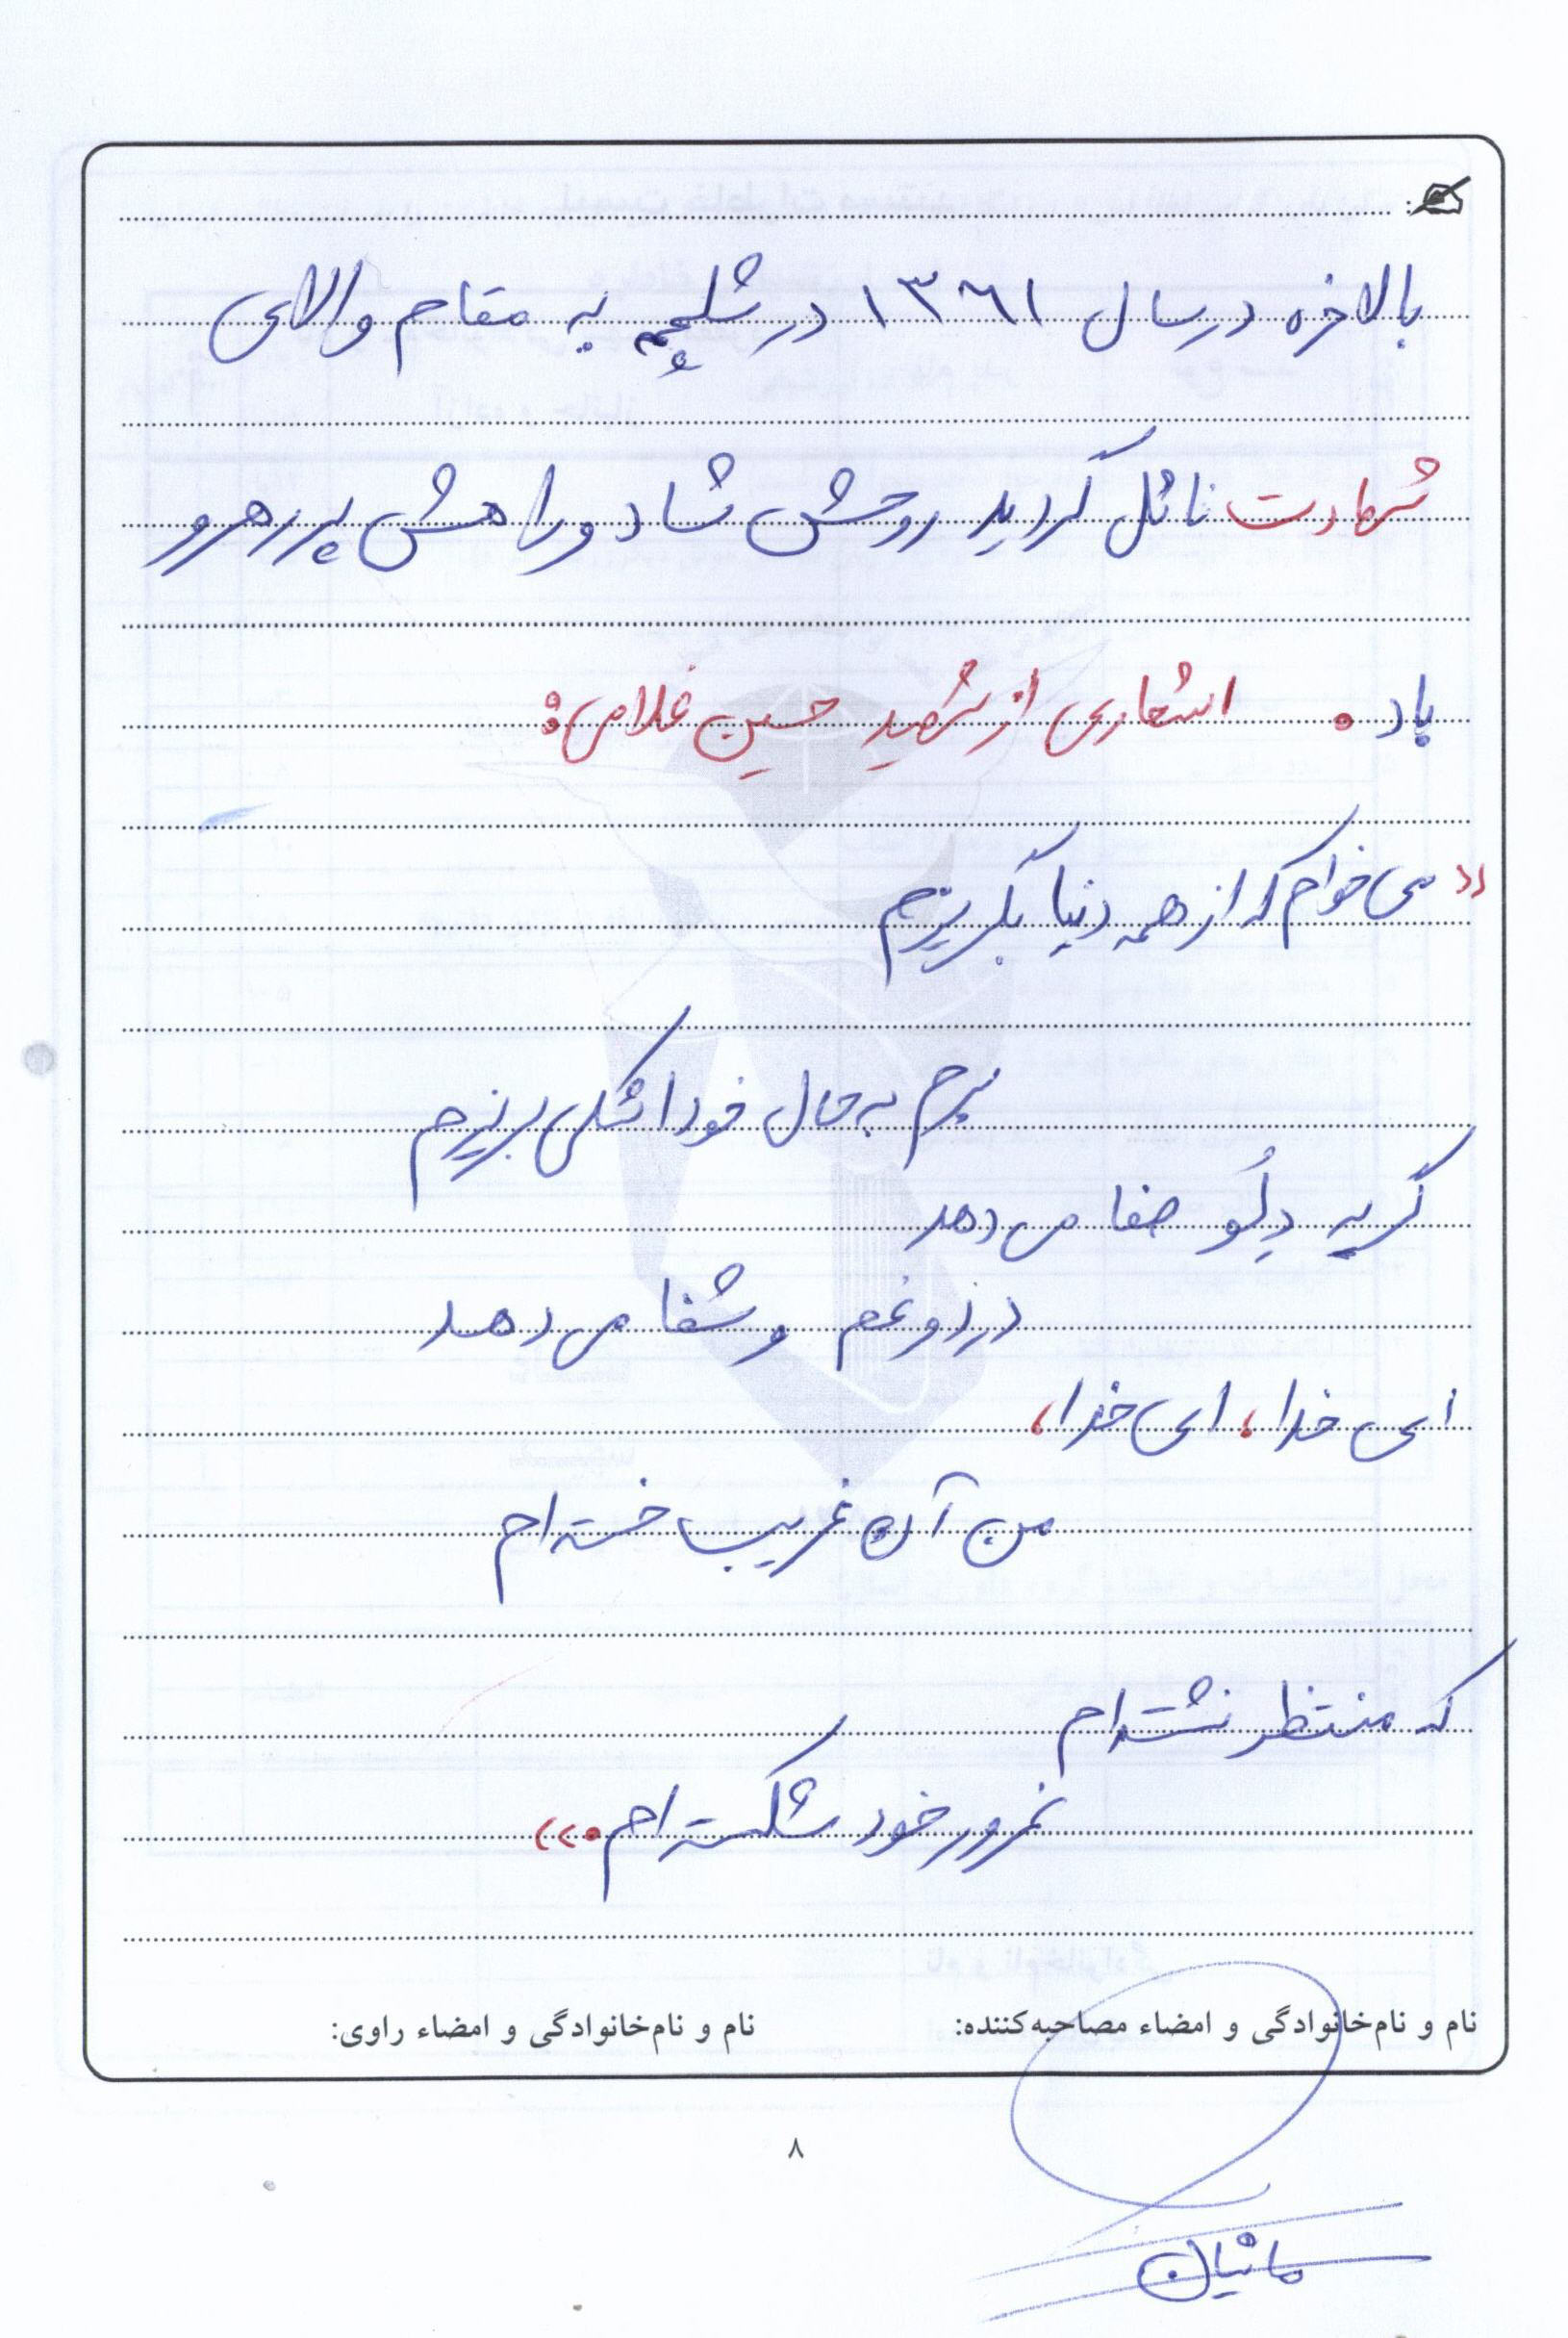 بالاخره در سال ۱۳۶۱ در شلمچه به مقام والای
شهادت نائل گردید روحش شاد و راهش پررهرو
باد. اشعاری از شهید حسین غلامی:
«می خواهم که از همه دنیا بگریزم
میرم به حال خود اشکی بریزم
گریه دِلُو صفا می دهد
درد و غم و شفا می دهد
ای خدا، ای خدا،
من آن غریب خسته ام
که منتظر نشسته ام
غرور خود شکسته ام.»
نام و نام‌خانوادگی و امضاء مصاحبه‌کننده: نام و نام‌خانوادگی و امضاء راوی:
۸